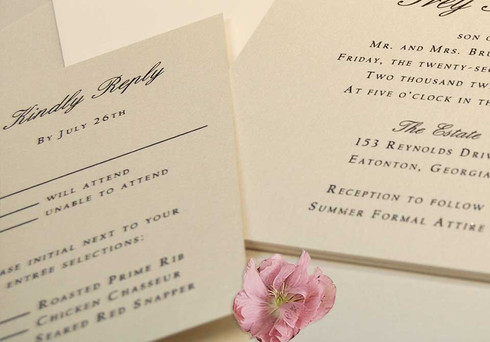 Kindly Reply
By July 26th
will attend
unable to attend
initial next to your
entrée selections:
Roasted Prime Rib
Chicken Chasseur
Seared Red Snapper
son o
Mr. and Mrs. Bru
Friday, the twenty-se
Two thousand tw
At five o'clock in th
The Estate
153 Reynolds Driv
Eatonton, Georgia
Reception to follow
Summer Formal Attire